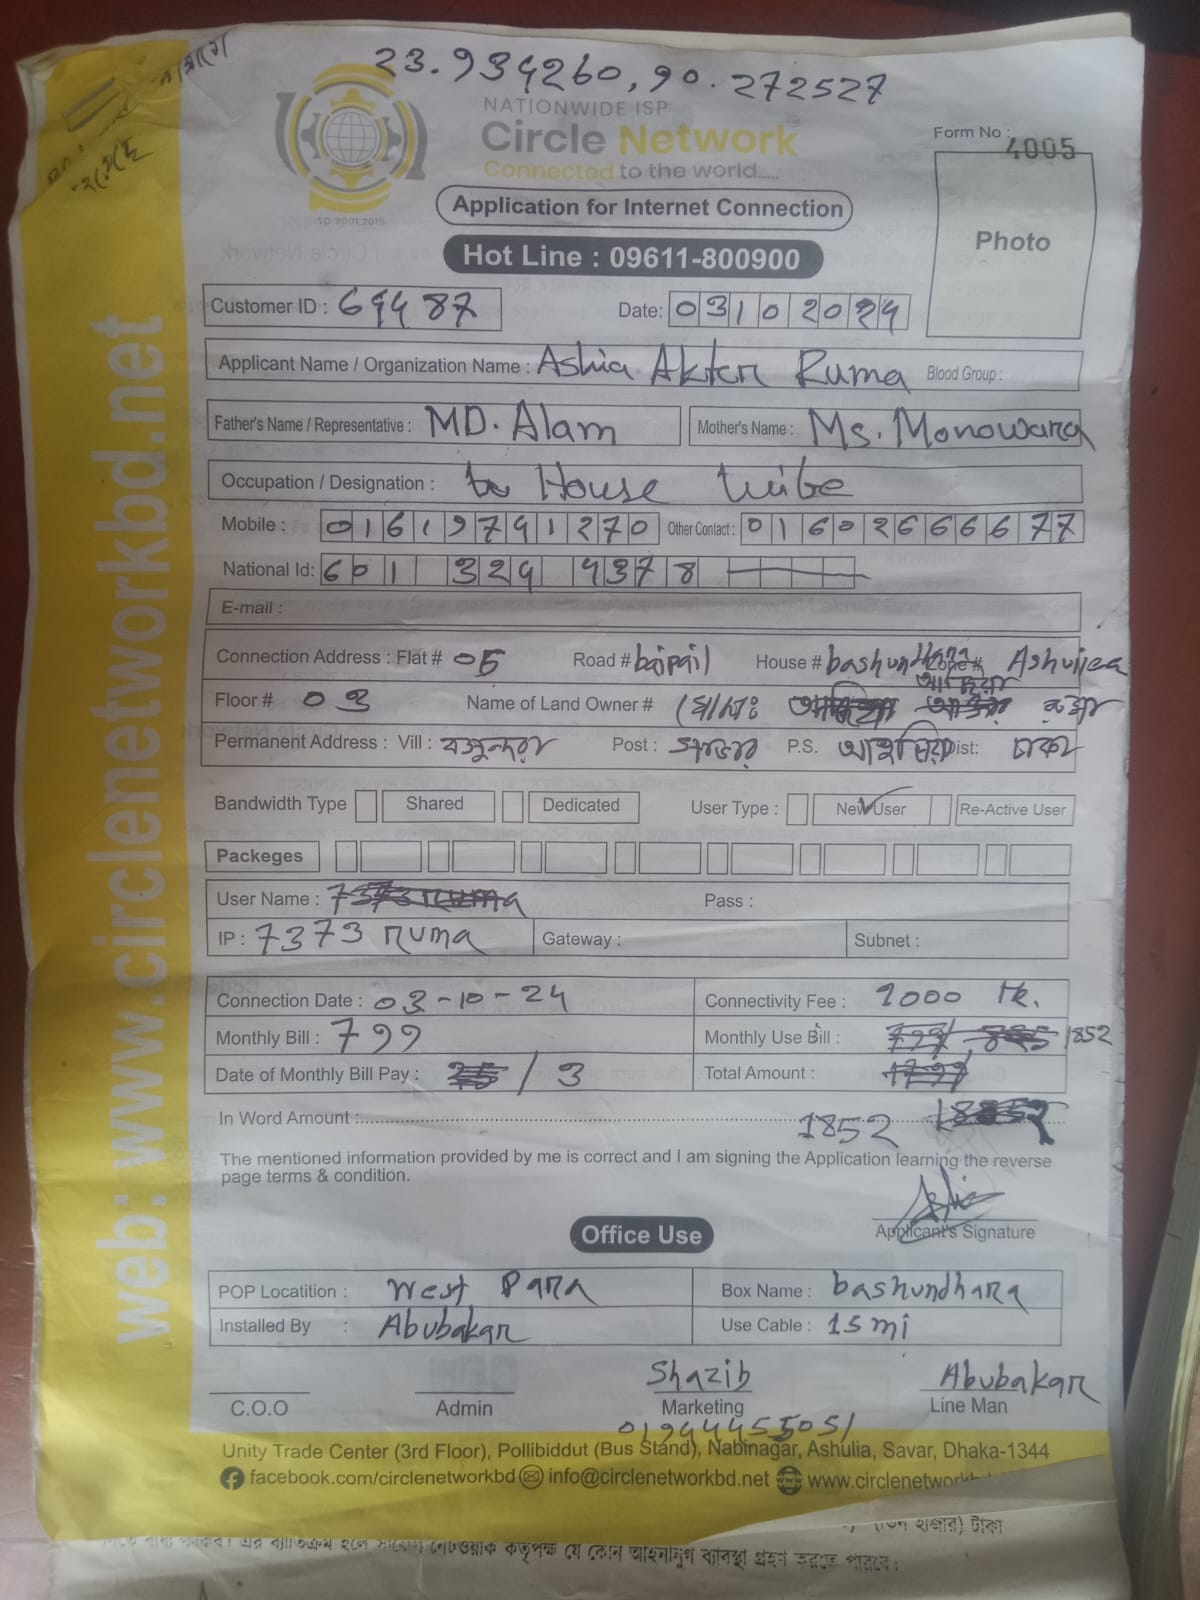 23.934260, 90.272527
NATIONWIDE ISP
Circle Network
Connected to the world.....
ISO 9001:2015
Form No : 4005
Photo
Application for Internet Connection
Hot Line : 09611-800900
Customer ID : 69487 Date: 03102024
Applicant Name / Organization Name : Ashia Akter Ruma Blood Group :
Father's Name / Representative : MD. Alam Mother's Name : Ms. Monowara
Occupation / Designation : House wibe
Mobile : 01619791270 Other Contact : 01602666677
National Id: 601 329 9378
E-mail :
Connection Address : Flat # 05 Road # baipail House # bashundhara Zone # Ashuliea
Floor # 03 Name of Land Owner # মোসাঃ
Permanent Address : Vill : বসুন্দরা Post : সাভার P.S. আশুলিয়া Dist: ঢাকা
Bandwidth Type Shared Dedicated User Type : New User Re-Active User
Packeges
User Name : 7373 ruma Pass :
IP : 7373 ruma Gateway : Subnet :
Connection Date : 03-10-24 Connectivity Fee : 1000 Tk.
Monthly Bill : 799 Monthly Use Bill : 799/ 1852
Date of Monthly Bill Pay : 25 / 3 Total Amount : 1799/
In Word Amount :........ 1852
The mentioned information provided by me is correct and I am signing the Application learning the reverse
page terms & condition.
Applicant's Signature
Office Use
POP Locatition : West Para Box Name : bashundhara
Installed By : Abubakar Use Cable : 15 mi
Shazib Abubakar
C.O.O Admin Marketing Line Man
01944455051
Unity Trade Center (3rd Floor), Pollibiddut (Bus Stand), Nabinagar, Ashulia, Savar, Dhaka-1344
facebook.com/circlenetworkbd info@circlenetworkbd.net www.circlenetworkb
web: www.circlenetworkbd.net
(তিন হাজার) টাকা
কর্তৃপক্ষ যে কোন আইনানুগ ব্যাবস্থা গ্রহণ করতে পারবে।